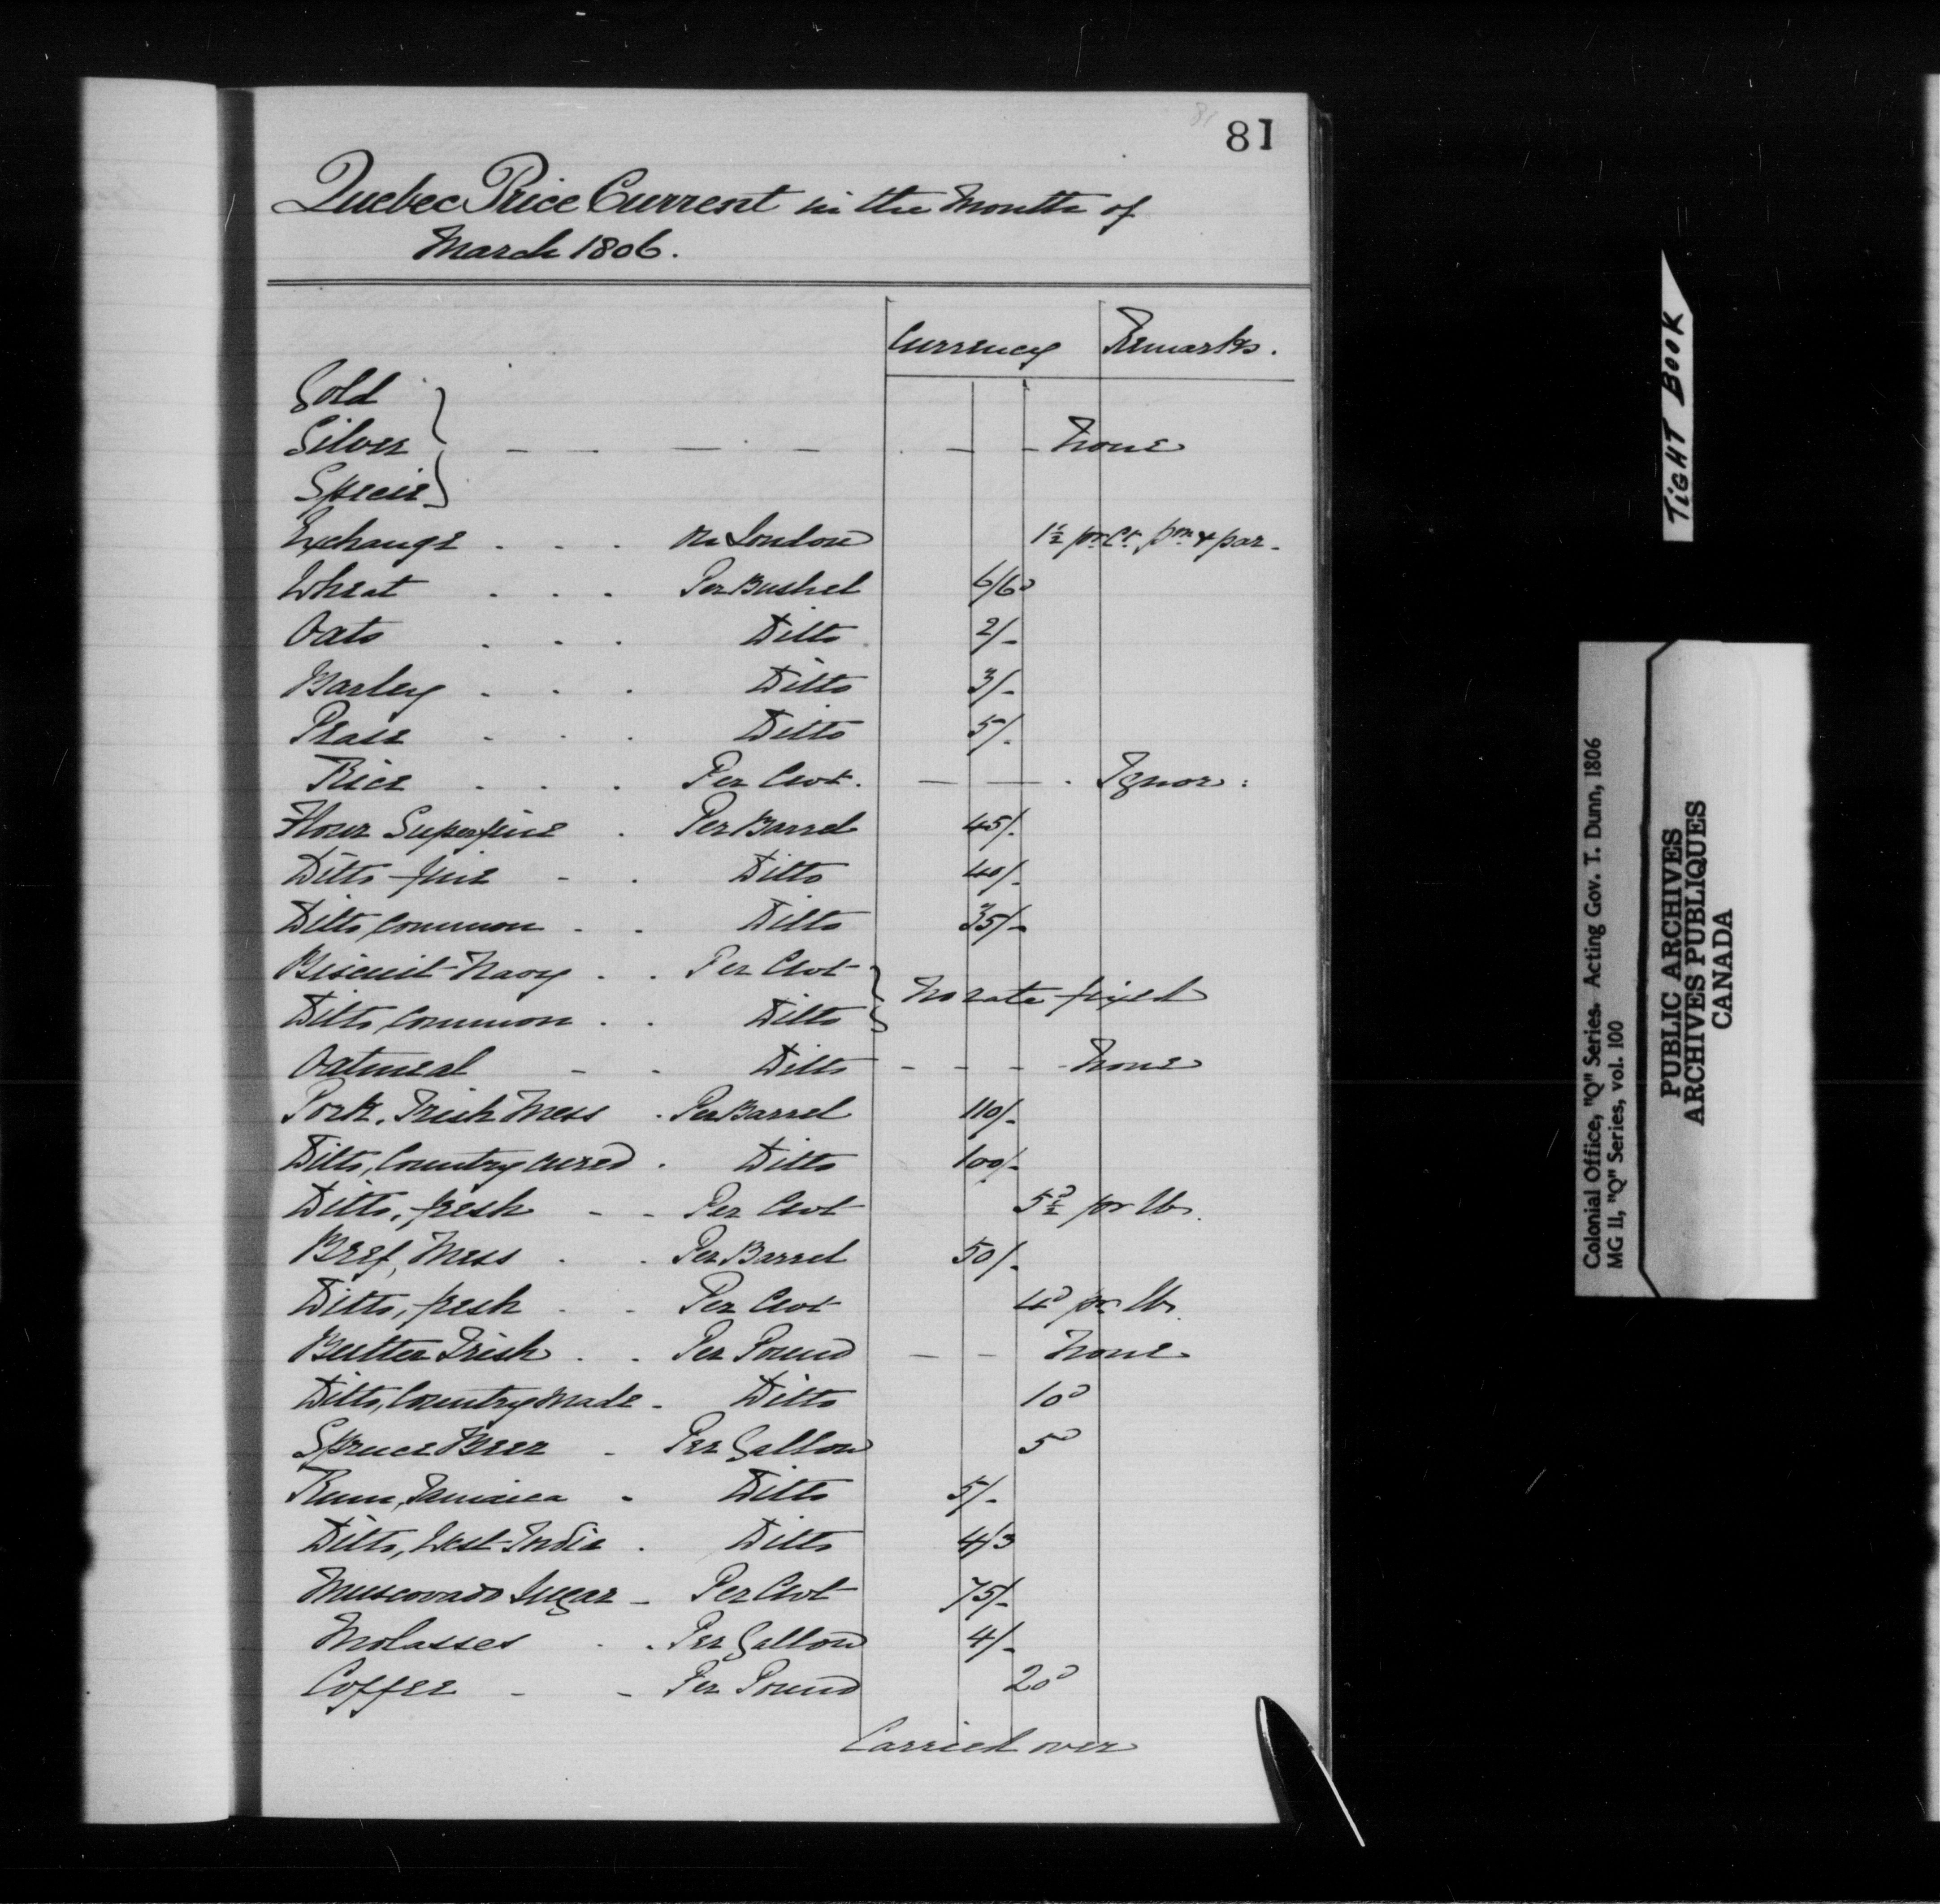 81
81
Quebec Price Current in the Month of
March 1806.
Currency Remarks.
Gold
Silver } — — — — . — - none
Specie
Exchange . . . on London 1½ pr Ct. pm & par.
Wheat . . . Per Bushel 6/6d
Oats . . . Ditto 2/-
Barley . . . Ditto 3/-
Pease . . . Ditto 5/-
Rice . . . Per Cwt. — — . Ignor:
Flour Superfine . Per Barrel 45/-
Ditto fine - . Ditto 40/-
Ditto, common . . Ditto 35/-
Biscuit Navy . . Per Cwt } No rate fixed
Ditto, common . . Ditto
Oatmeal - - Ditto - - - - none
Pork, Irish Mess . Per Barrel 110/-
Ditto, Country cured . Ditto 100/-
Ditto, fresh - - Per Cwt 5½d pr lb.
Beef, Mess . . Per Barrel 50/-
Ditto, fresh . . Per Cwt 4d pr lb.
Butter Irish . . Per Pound — - none
Ditto, Country made - Ditto 10d
Spruce Beer - Per Gallon 5d
Rum, Jamaica - Ditto 5/-
Ditto, West-India . Ditto 4/3
Muscovado Sugar - Per Cwt 75/-
Molasses . . Per Gallon 4/-
Coffee - - Per Pound 20d
Carried over
TIGHT BOOK
Colonial Office, "Q" Series. Acting Gov. T. Dunn, 1806
MG 11, "Q" Series, vol. 100
PUBLIC ARCHIVES
ARCHIVES PUBLIQUES
CANADA